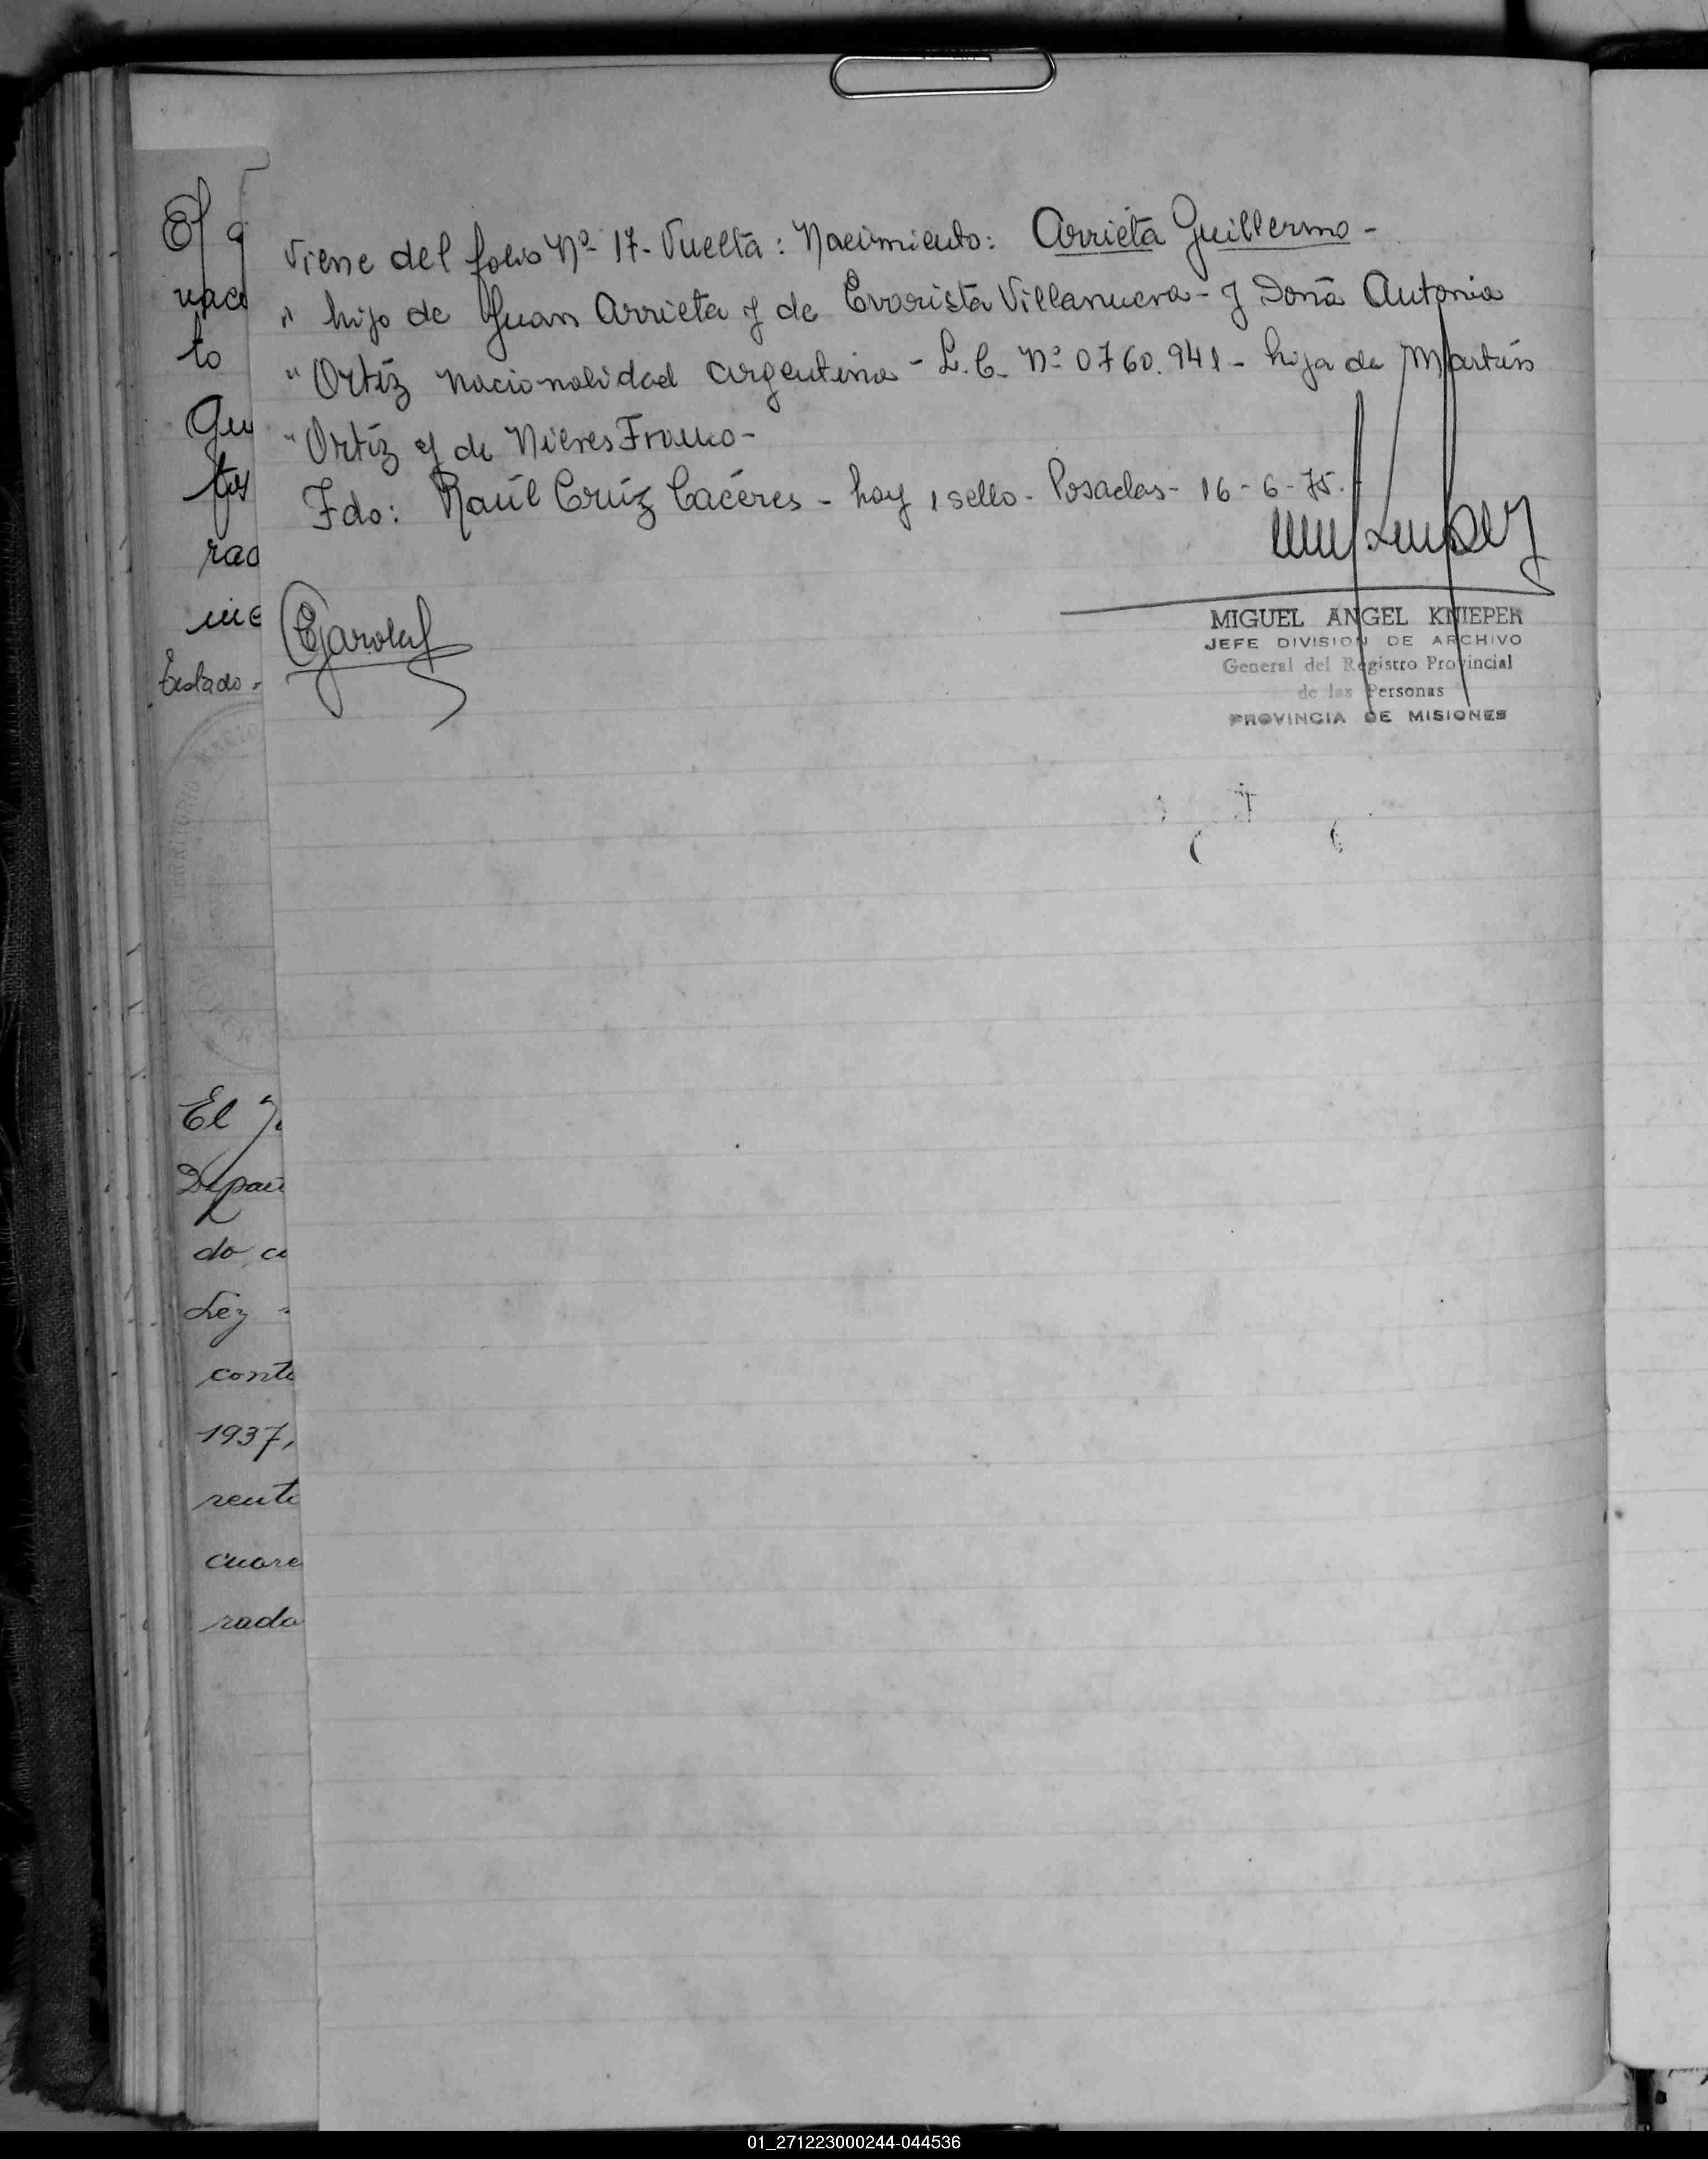 Viene del folio Nº 17- Vuelta: Nacimiento: Arrieta Guillermo -
" hijo de Juan Arrieta y de Evarista Villanueva - y Doña Antonia
" Ortíz nacionalidad argentina - L.C. Nº 0760.941 - hija de Martín
" Ortíz y de Nieves Franco -
Fdo: Raúl Cruz Cacéres - hay 1 sello - Posadas - 16-6-75.
MIGUEL ANGEL KNIEPER
JEFE DIVISION DE ARCHIVO
General del Registro Provincial
de las Personas
PROVINCIA DE MISIONES
naci
to
rac
Testado
TERRITORIO
El
Depar
do
Ley
conte
1937,
rent
cuare
rada
01_271223000244-044536